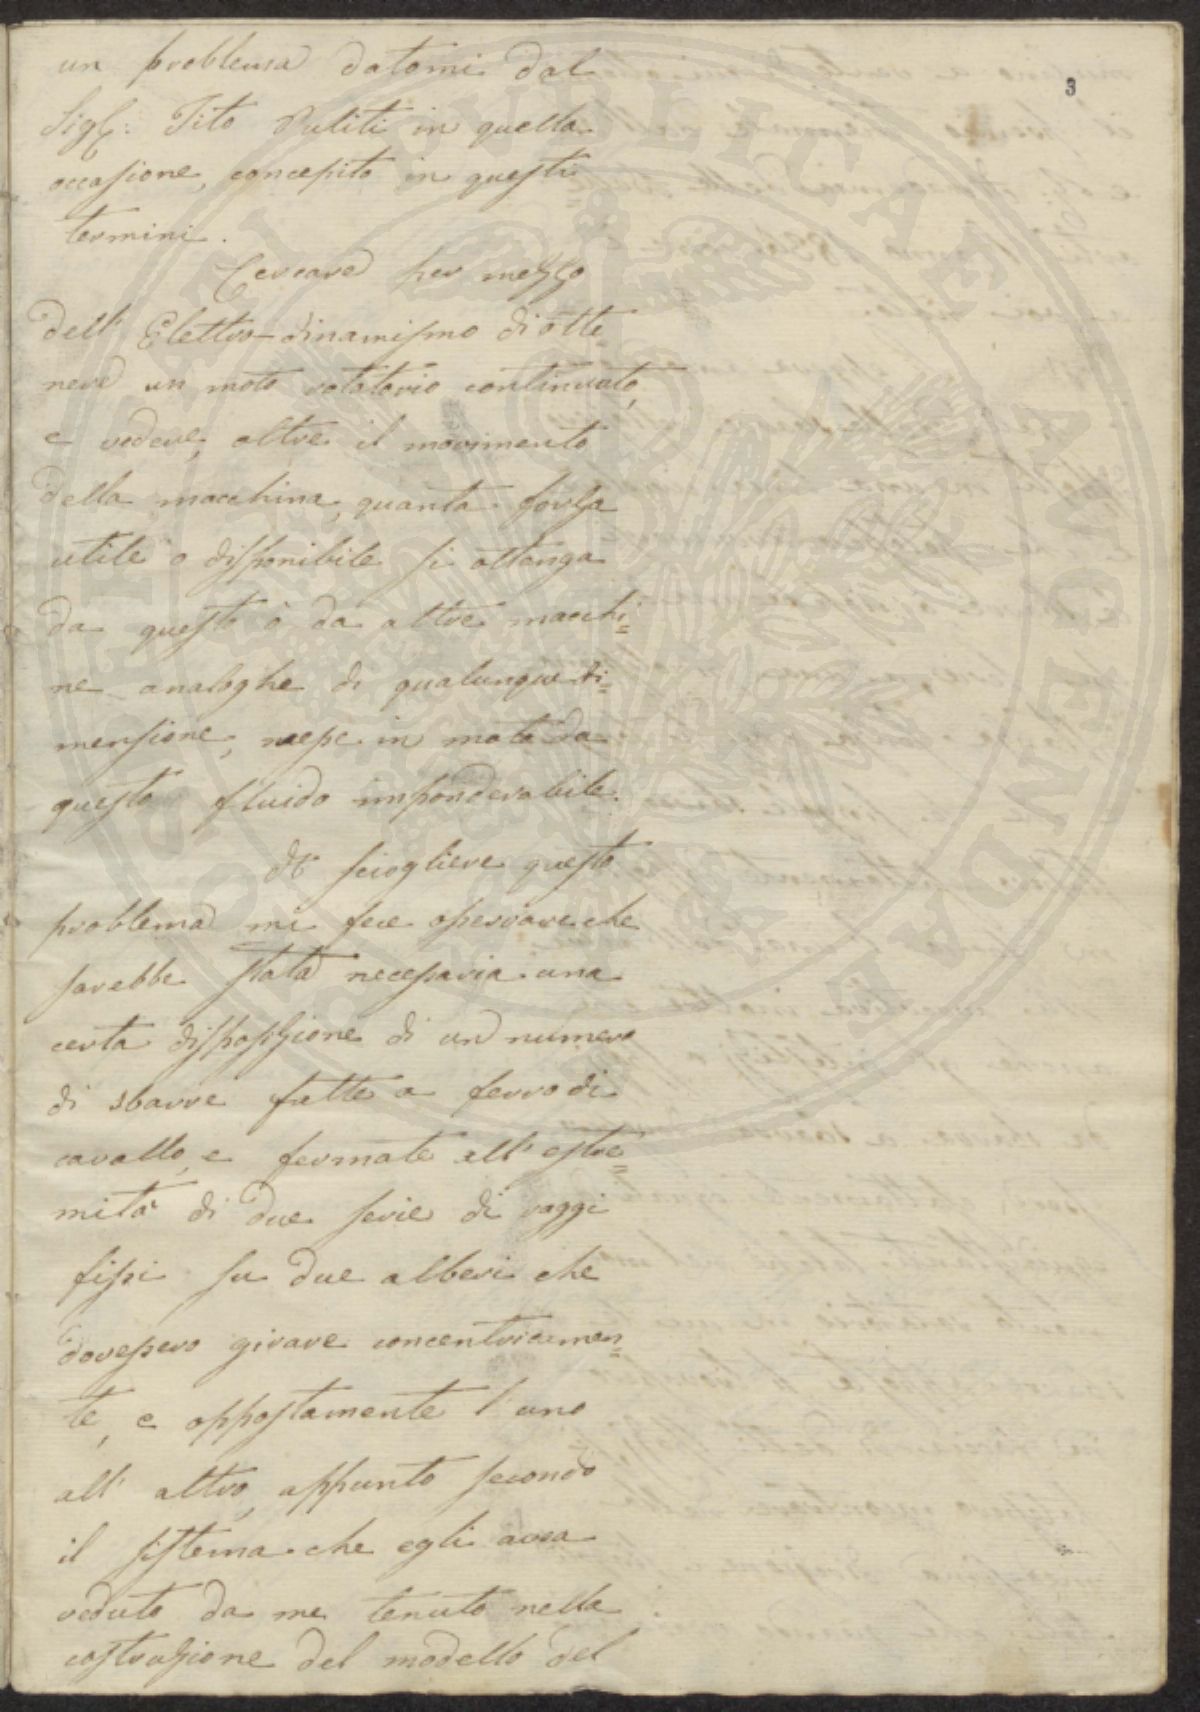 3
un problema datomi dal
Sig.: Tito Puliti in quella
occasione, concepito in questi
termini.
Cercare per mezzo
dell' Elettro-dinamismo di otte=
nere un moto rotatorio continuato,
e vedere, oltre il movimento
della macchina, quanta forza
utile o disponibile si ottenga
da questo ò da altre macchi=
ne analoghe di qualunque di=
mensione, messe in moto da
questo fluido imponderabile.
Il sciogliere questo
problema mi fece osservare che
sarebbe stata necessaria una
certa disposizione di un numero
di sbarre fatte a ferro di
cavallo, e fermate all' estre=
mità di due serie di raggi
fissi su due alberi che
dovessero girare concentricamen=
te, e oppostamente l'uno
all' altro, appunto secondo
il sistema che egli avea
veduto da me tenuto nella
costruzione del modello del
PVBLICAE AVGENDAE